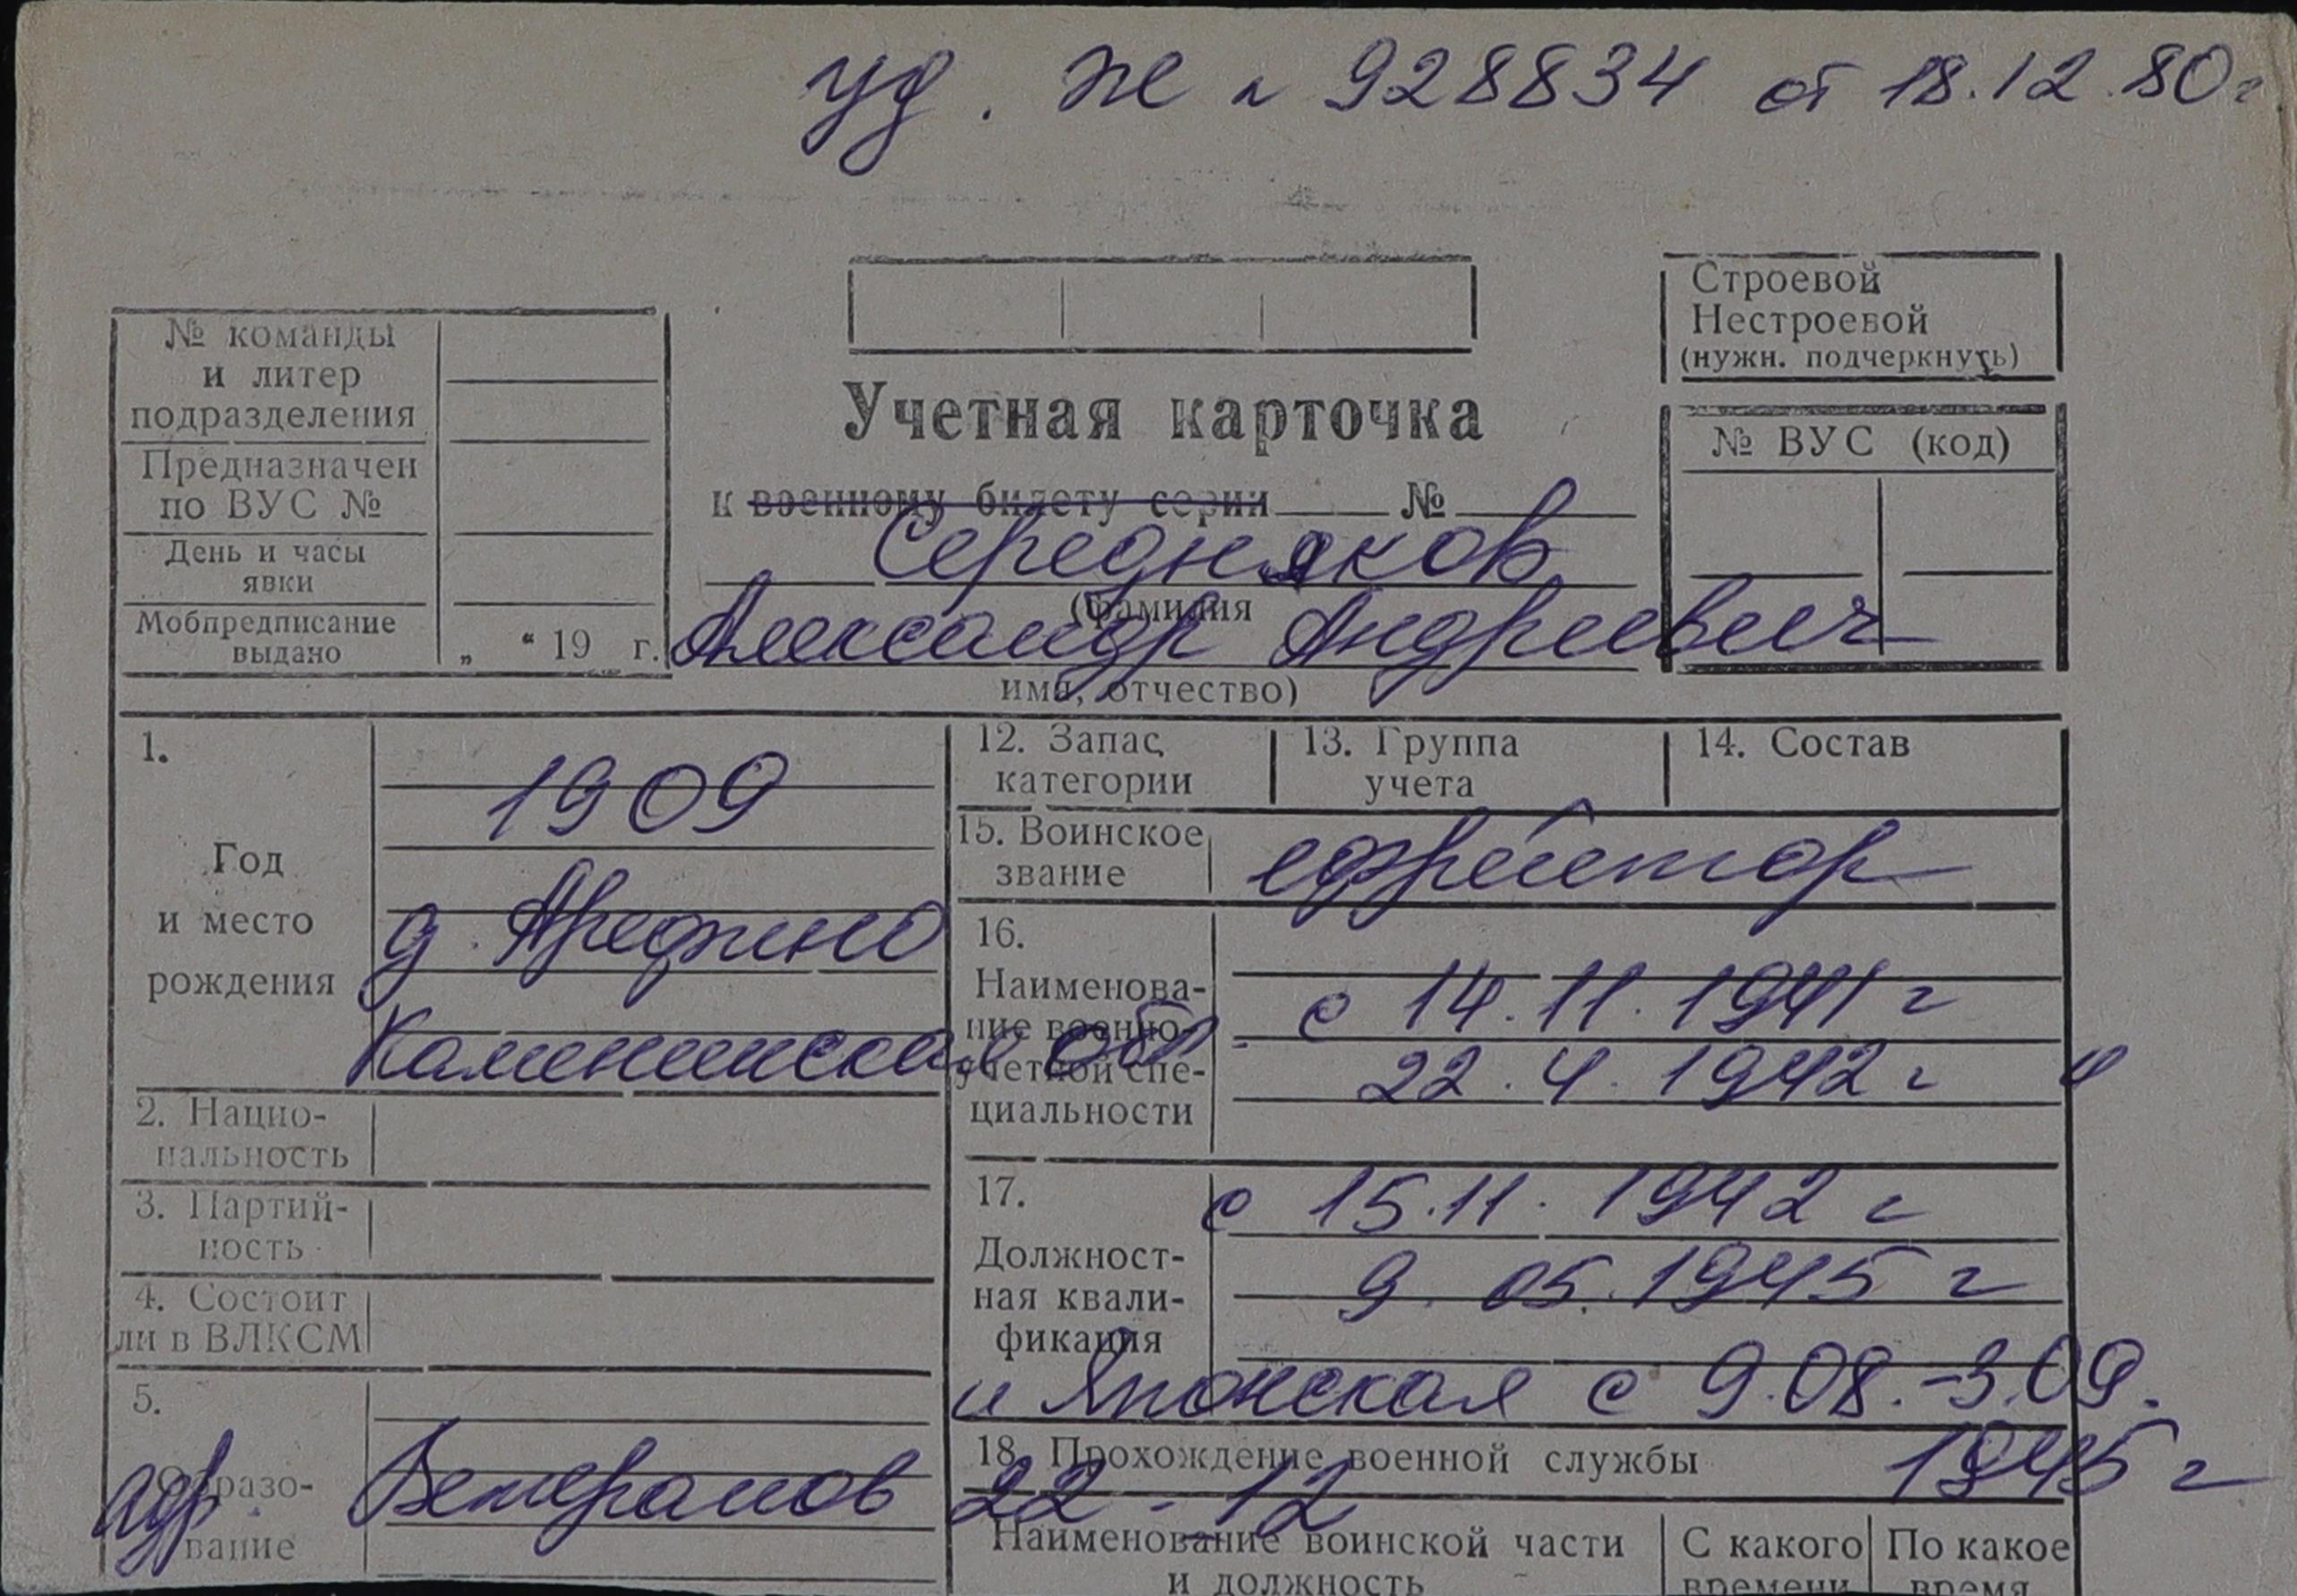 уд. Ж № 928834 от 18.12.80г
Строевой
Нестроевой
(нужн. подчеркнуть)
№ команды
и литер
подразделения
Предназначен
по ВУС №
День и часы
явки
Мобпредписание
выдано
„ “ 19 г.
Учетная карточка
к военному билету серии № 
Середняков
(фамилия
Александр Андреевич
имя, отчество)
№ ВУС (код)
1.
Год
и место
рождения
1909
д. Арефино
Каменская обл.
2. Нацио-
нальность
3. Партий-
ность
4. Состоит
ли в ВЛКСМ
5.
Образо-
вание
адр. Ветеранов 22-12
12. Запас
категории
13. Группа
учета
14. Состав
15. Воинское
звание
ефрейтор
16.
Наименова-
ние военно-
учетной спе-
циальности
с 14.11.1941г
22.4.1942г и
17.
Должност-
ная квали-
фикация
с 15.11.1942г
9.05.1945г
и Японская с 9.08.-3.09.
1945г
18. Прохождение военной службы
Наименование воинской части
и должность
С какого
времени
По какое
время